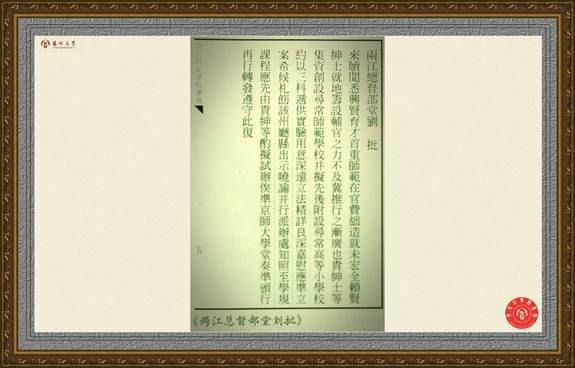 兩江總督部堂劉 批
來牘閱悉興賢育才首重師範在官費絀造就未宏全賴賢
紳士就地籌設輔官之力不及冀推行之漸廣也貴紳士等
集資創設尋常師範學校并擬先後附設尋常高等小學校
約以三科遞供實驗用意深遠立法精詳良深嘉慰應準立
案希候札飭該州廳縣出示曉諭并行派辦處知照至學規
課程應先由貴紳等酌擬試辦俟準京師大學堂奏準頒行
再行轉發遵守此復
五
《两江总督部堂刘批》
扬州大学